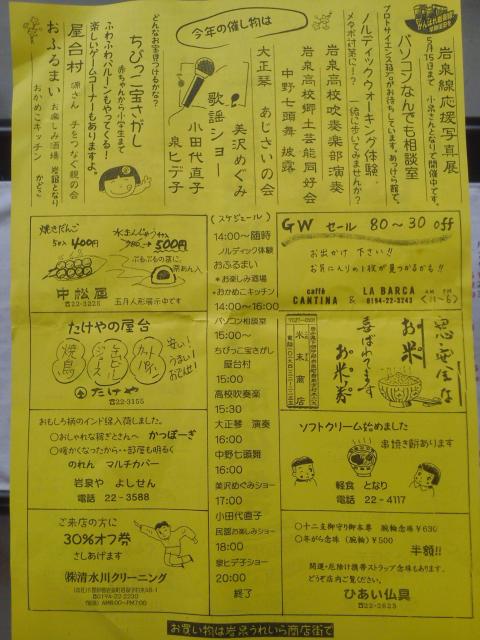 岩泉線応援写真展
5月15日まで 小泉さんとなりで開催中です。
パソコンなんでも相談室
プロトサイエンス(株)がお待ちしています。あっけら館で。
ノルディックウォーキング体験
メタボ対策に!? 一緒に歩いてみませんか?
岩泉高校吹奏楽部演奏
岩泉高校郷土芸能同好会
中野七頭舞 披露
大正琴 あじさいの会
今年の催し物は
歌謡ショー
美沢めぐみ
小田代直子
泉ヒデ子
どんなお宝見つけるかな?
ちびっこ宝さがし
赤ちゃんから小学生まで
ふわふわバルーンもやってくる!
楽しいゲームコーナーもありますよ。
屋台村
手をつなぐ親の会
おふるまい
お楽しみ酒場 岩銀となり
おかめこキッチン かどこ
焼きだんご
5本入 400円
水まんじゅう
500円
ぷるぷるの蒸に
中松屋
☎22-3225
五月人形展示中です
たけやの屋台
焼鳥
ジュース
缶ビール
カットパイン
安い!
うまい!
おでんせ!
たけや
☎22-3155
おもしろ柄のインド綿入荷しました。
○おしゃれな稼ぎとさんへ かっぽーぎ
○暖かくなったから‥部屋も明るく
のれん マルチカバー
岩泉や よしせん
電話 22-3588
ご来店の方に
30%オフ券
さしあげます
㈱清水川クリーニング
☎0194-22-2230
(スケジュール)
14:00~随時
ノルディック体験
おふるまい
*お楽しみ酒場
*おかめこキッチン
14:00~16:00
パソコン相談室
15:00~
ちびっこ宝さがし
屋台村
15:00
高校吹奏楽
15:30
大正琴 演奏
16:00
中野七頭舞
16:00
美沢めぐみショー
17:00
小田代直子
民謡お楽しみショー
18:00
泉ヒデ子ショー
20:00
終了
GW セール 80~30off
お出かけ下さい!!
お気に入りの1枚が見つかるかも!!
caffè CANTINA & LA BARCA
0194-22-3243
お米
喜ばれてます
お米券
米末商店
ソフトクリーム始めました
串焼き餅あります
軽食 となり
電話 22-4117
○十二支御守り御本尊 腕輪念珠¥630
○年がら念珠(腕輪)¥500
半額!!
開運・厄除け携帯ストラップ念珠もあります。
どうぞ店内ご覧ください。
ひあい仏具
☎22-2623
お買い物は岩泉うれいら商店街で